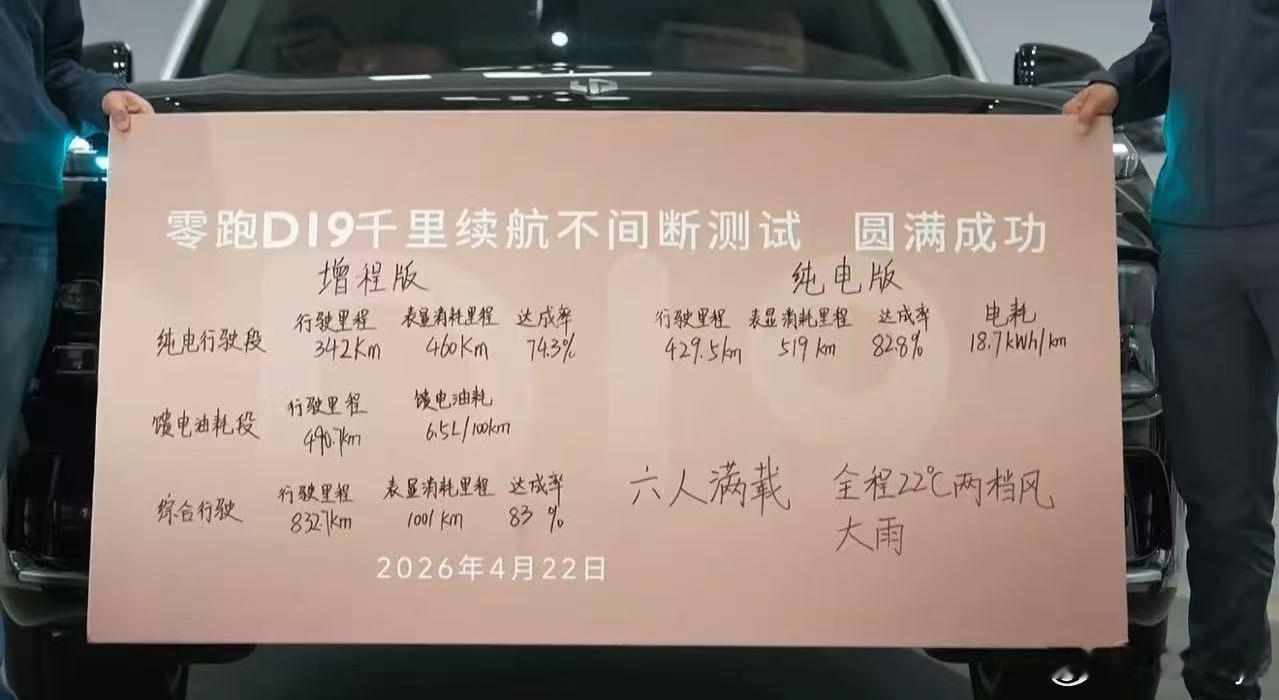 零跑D19千里续航不间断测试 圆满成功
增程版
纯电行驶段
行驶里程 表显消耗里程 达成率
342Km 460Km 74.3%
馈电油耗段
行驶里程 馈电油耗
490.7km 6.5L/100km
综合行驶
行驶里程 表显消耗里程 达成率
832.7km 1001km 83%
纯电版
行驶里程 表显消耗里程 达成率 电耗
429.5km 519km 82.8% 18.7kWh/km
六人满载 全程22℃两档风
大雨
2026年4月22日